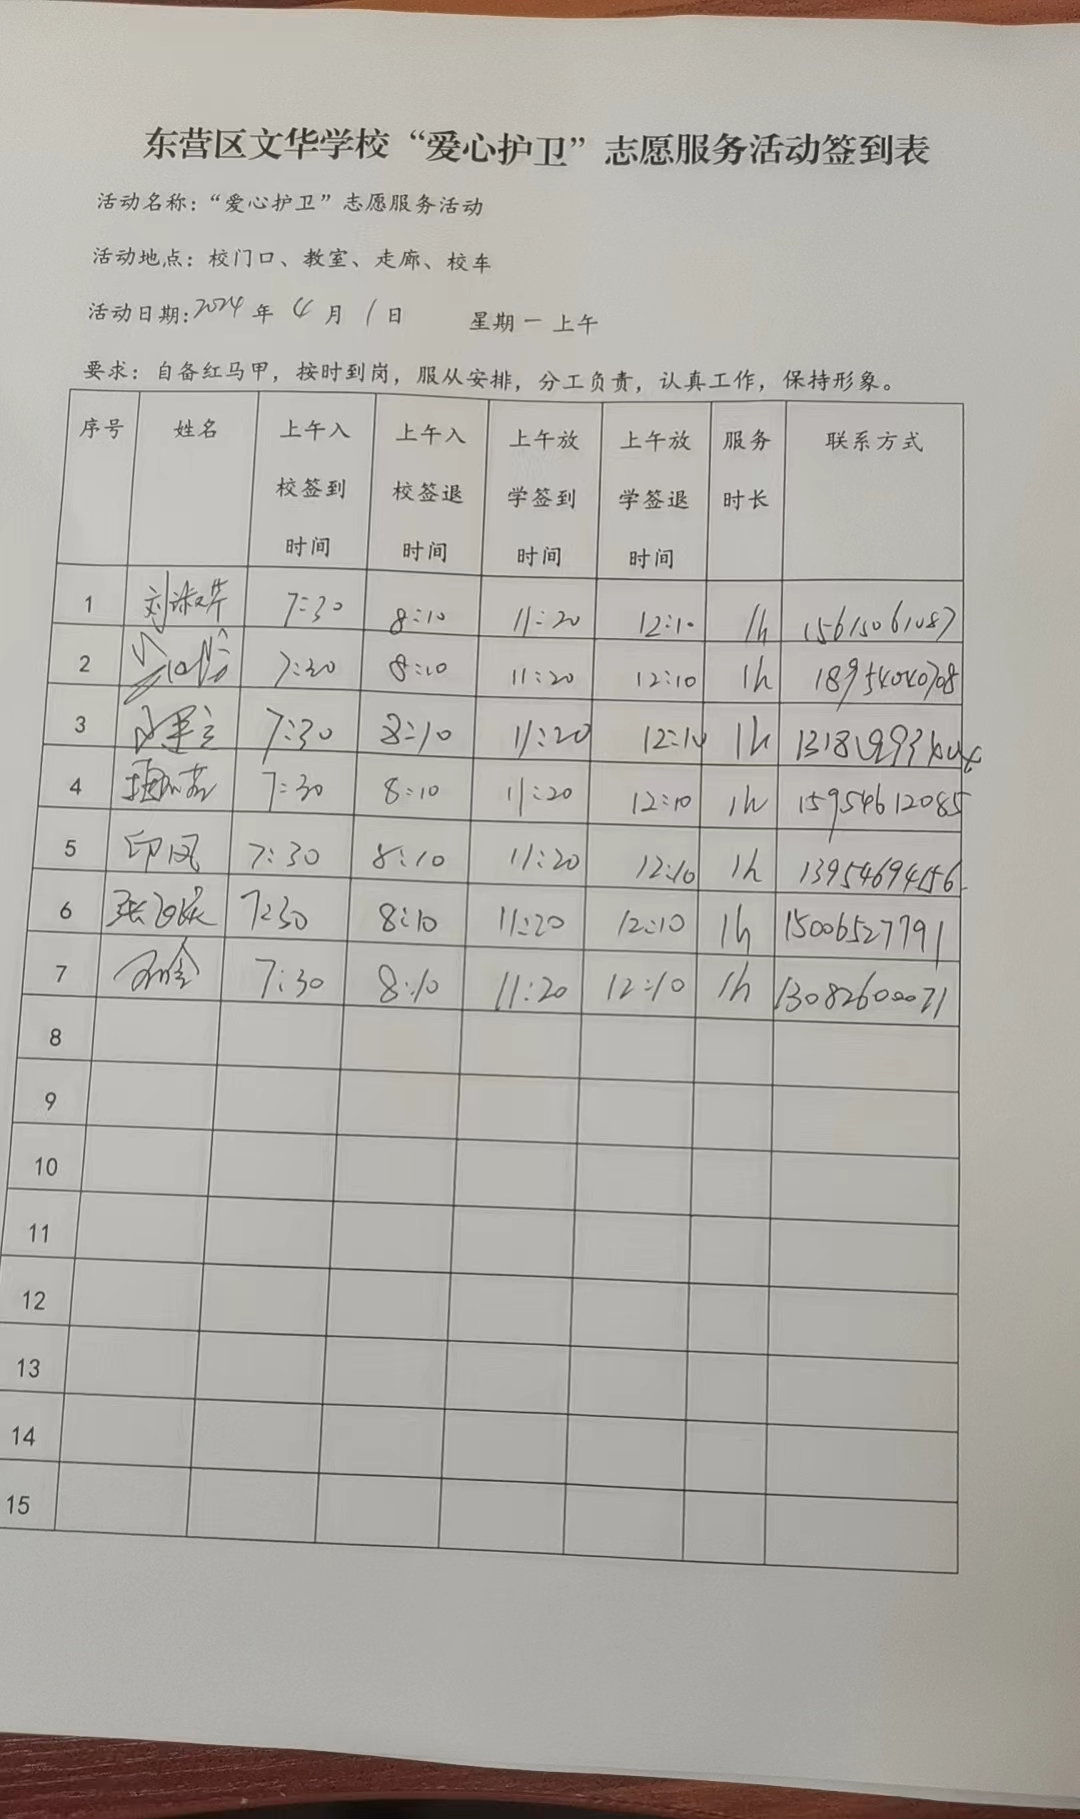 东营区文华学校“爱心护卫”志愿服务活动签到表
活动名称：“爱心护卫”志愿服务活动
活动地点：校门口、教室、走廊、校车
活动日期：2024 年 4 月 1 日 星期一 上午
要求：自备红马甲，按时到岗，服从安排，分工负责，认真工作，保持形象。
序号 姓名 上午入校签到时间 上午入校签退时间 上午放学签到时间 上午放学签退时间 服务时长 联系方式
1 7:30 8:10 11:20 12:10 1h 15615061087
2 7:30 8:10 11:20 12:10 1h 18954040708
3 7:30 8:10 11:20 12:10 1h
4 7:30 8:10 11:20 12:10 1h 15954612085
5 印凤 7:30 8:10 11:20 12:10 1h 13954694156
6 7:30 8:10 11:20 12:10 1h 15006527791
7 7:30 8:10 11:20 12:10 1h 13082600071
8
9
10
11
12
13
14
15